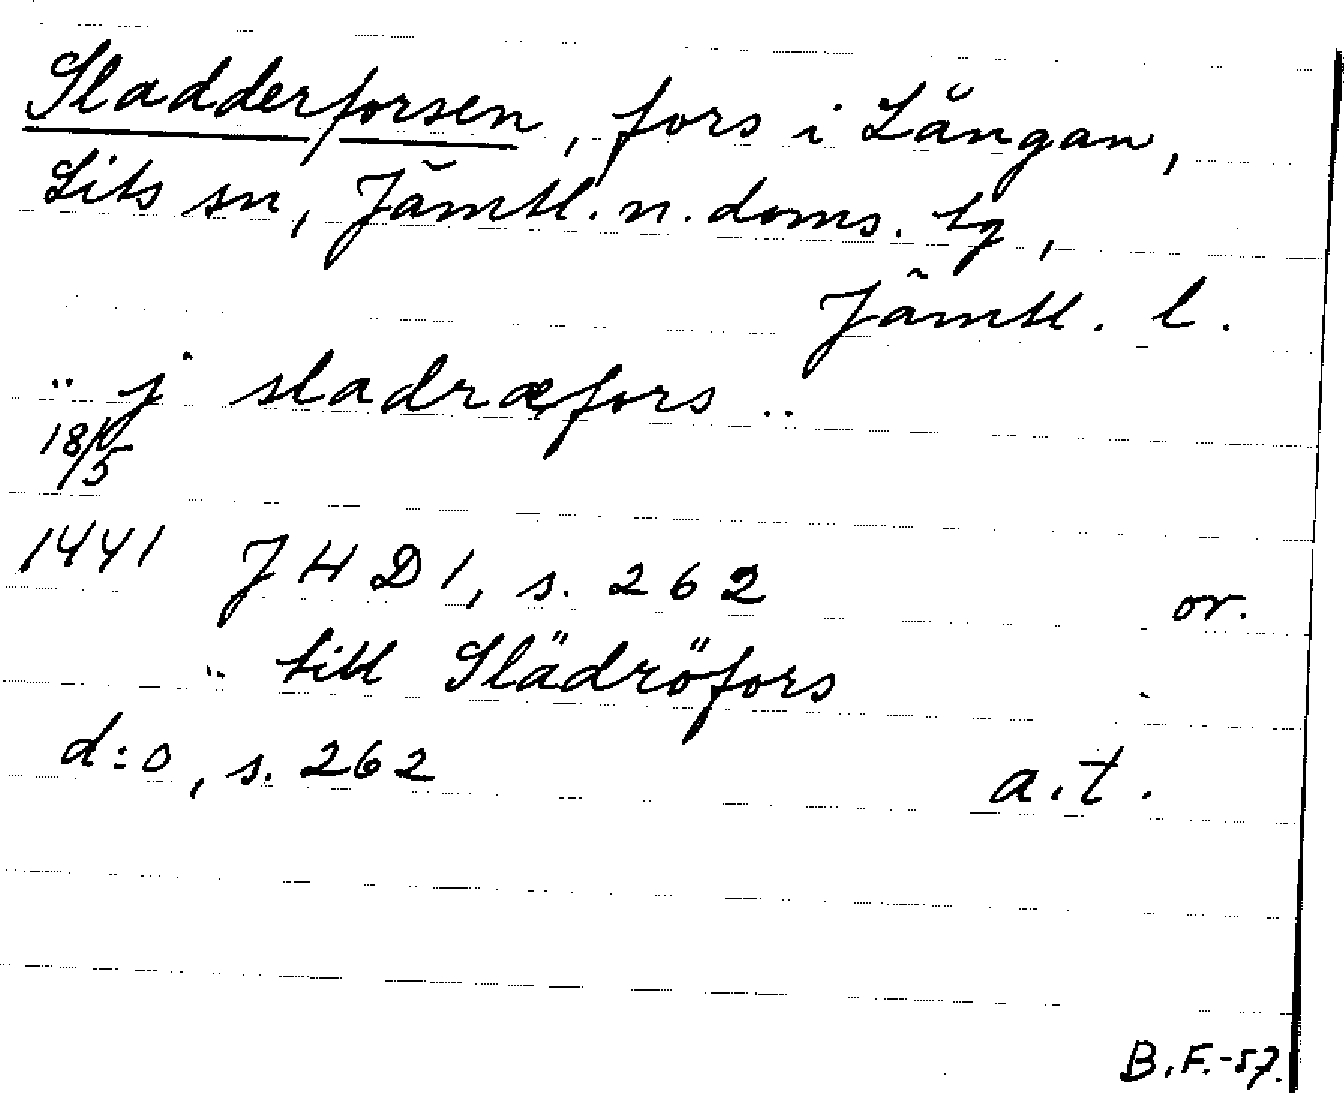 Sladderforsen, fors i Långan,
Lits sn, Jämtl. n. doms. tg,
Jämtl. l.
.. j sladræfors ..
18/5
1441 J H D 1, s. 262 or.
.. till Slädröfors
d:o, s. 262 a.t.
B.F.-57.